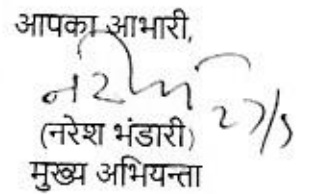 आपका आभारी,
नरेश 27/5
(नरेश भंडारी)
मुख्य अभियन्ता